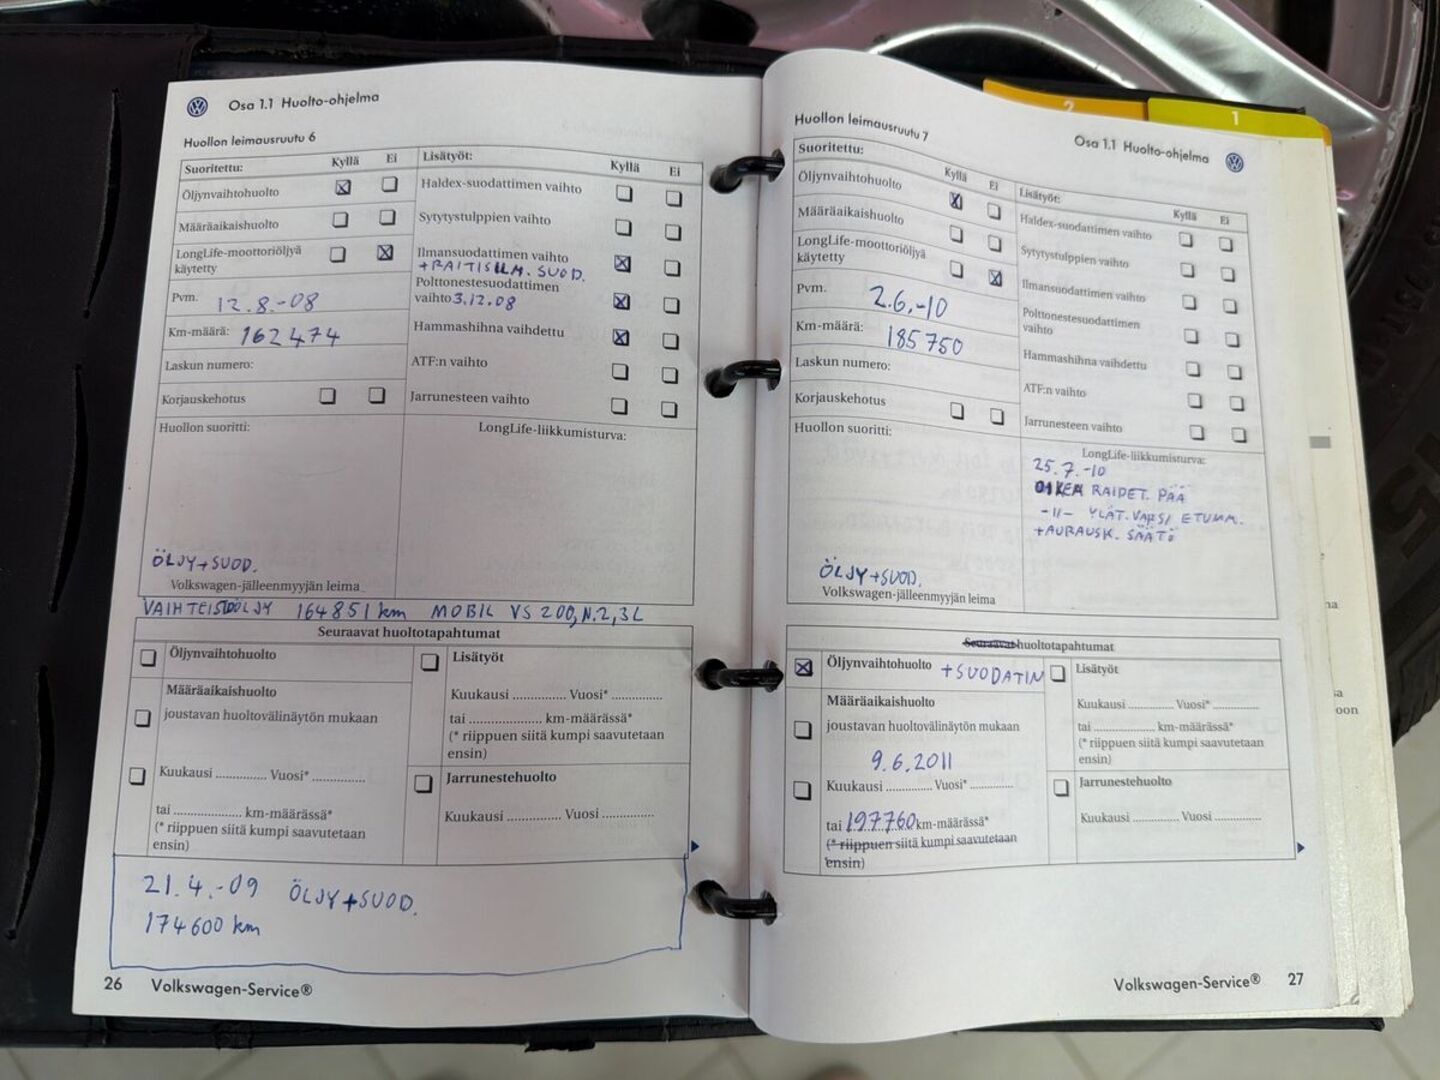 Osa 1.1 Huolto-ohjelma
Huollon leimausruutu 6
Suoritettu: Kyllä Ei
Öljynvaihtohuolto
Määräaikaishuolto
LongLife-moottoriöljyä
käytetty
Pvm. 12.8.-08
Km-määrä: 162474
Laskun numero:
Korjauskehotus
Huollon suoritti:
ÖLJY+SUOD.
Volkswagen-jälleenmyyjän leima
Lisätyöt: Kyllä Ei
Haldex-suodattimen vaihto
Sytytystulppien vaihto
Ilmansuodattimen vaihto
+RAITISILM. SUOD.
Polttonestesuodattimen
vaihto 3.12.08
Hammashihna vaihdettu
ATF:n vaihto
Jarrunesteen vaihto
LongLife-liikkumisturva:
VAIHTEISTOÖLJY 164851km MOBIL VS 200, N.2,3L
Seuraavat huoltotapahtumat
Öljynvaihtohuolto
Määräaikaishuolto
joustavan huoltovälinäytön mukaan
Kuukausi ............... Vuosi* ...............
tai .................... km-määrässä*
(* riippuen siitä kumpi saavutetaan
ensin)
Lisätyöt
Kuukausi ............... Vuosi* ...............
tai .................... km-määrässä*
(* riippuen siitä kumpi saavutetaan
ensin)
Jarrunestehuolto
Kuukausi ............... Vuosi ...............
21.4.-09 ÖLJY+SUOD.
174600 km
26 Volkswagen-Service®
2
1
Osa 1.1 Huolto-ohjelma
Huollon leimausruutu 7
Suoritettu: Kyllä Ei
Öljynvaihtohuolto
Määräaikaishuolto
LongLife-moottoriöljyä
käytetty
Pvm. 2.6.-10
Km-määrä: 185750
Laskun numero:
Korjauskehotus
Huollon suoritti:
ÖLJY+SUOD.
Volkswagen-jälleenmyyjän leima
Lisätyöt: Kyllä Ei
Haldex-suodattimen vaihto
Sytytystulppien vaihto
Ilmansuodattimen vaihto
Polttonestesuodattimen
vaihto
Hammashihna vaihdettu
ATF:n vaihto
Jarrunesteen vaihto
LongLife-liikkumisturva:
25.7.-10
OIKEA RAIDET. PÄÄ
-11- YLÄT.VARSI ETUMM.
+AURAUSK. SÄÄTÖ
Seuraavat huoltotapahtumat
Öljynvaihtohuolto +SUODATIN
Määräaikaishuolto
joustavan huoltovälinäytön mukaan
9.6.2011
Kuukausi ............... Vuosi* ...............
tai 197760 km-määrässä*
(* riippuen siitä kumpi saavutetaan
ensin)
Lisätyöt
Kuukausi ............... Vuosi* ...............
tai .................... km-määrässä*
(* riippuen siitä kumpi saavutetaan
ensin)
Jarrunestehuolto
Kuukausi ............... Vuosi ...............
Volkswagen-Service® 27